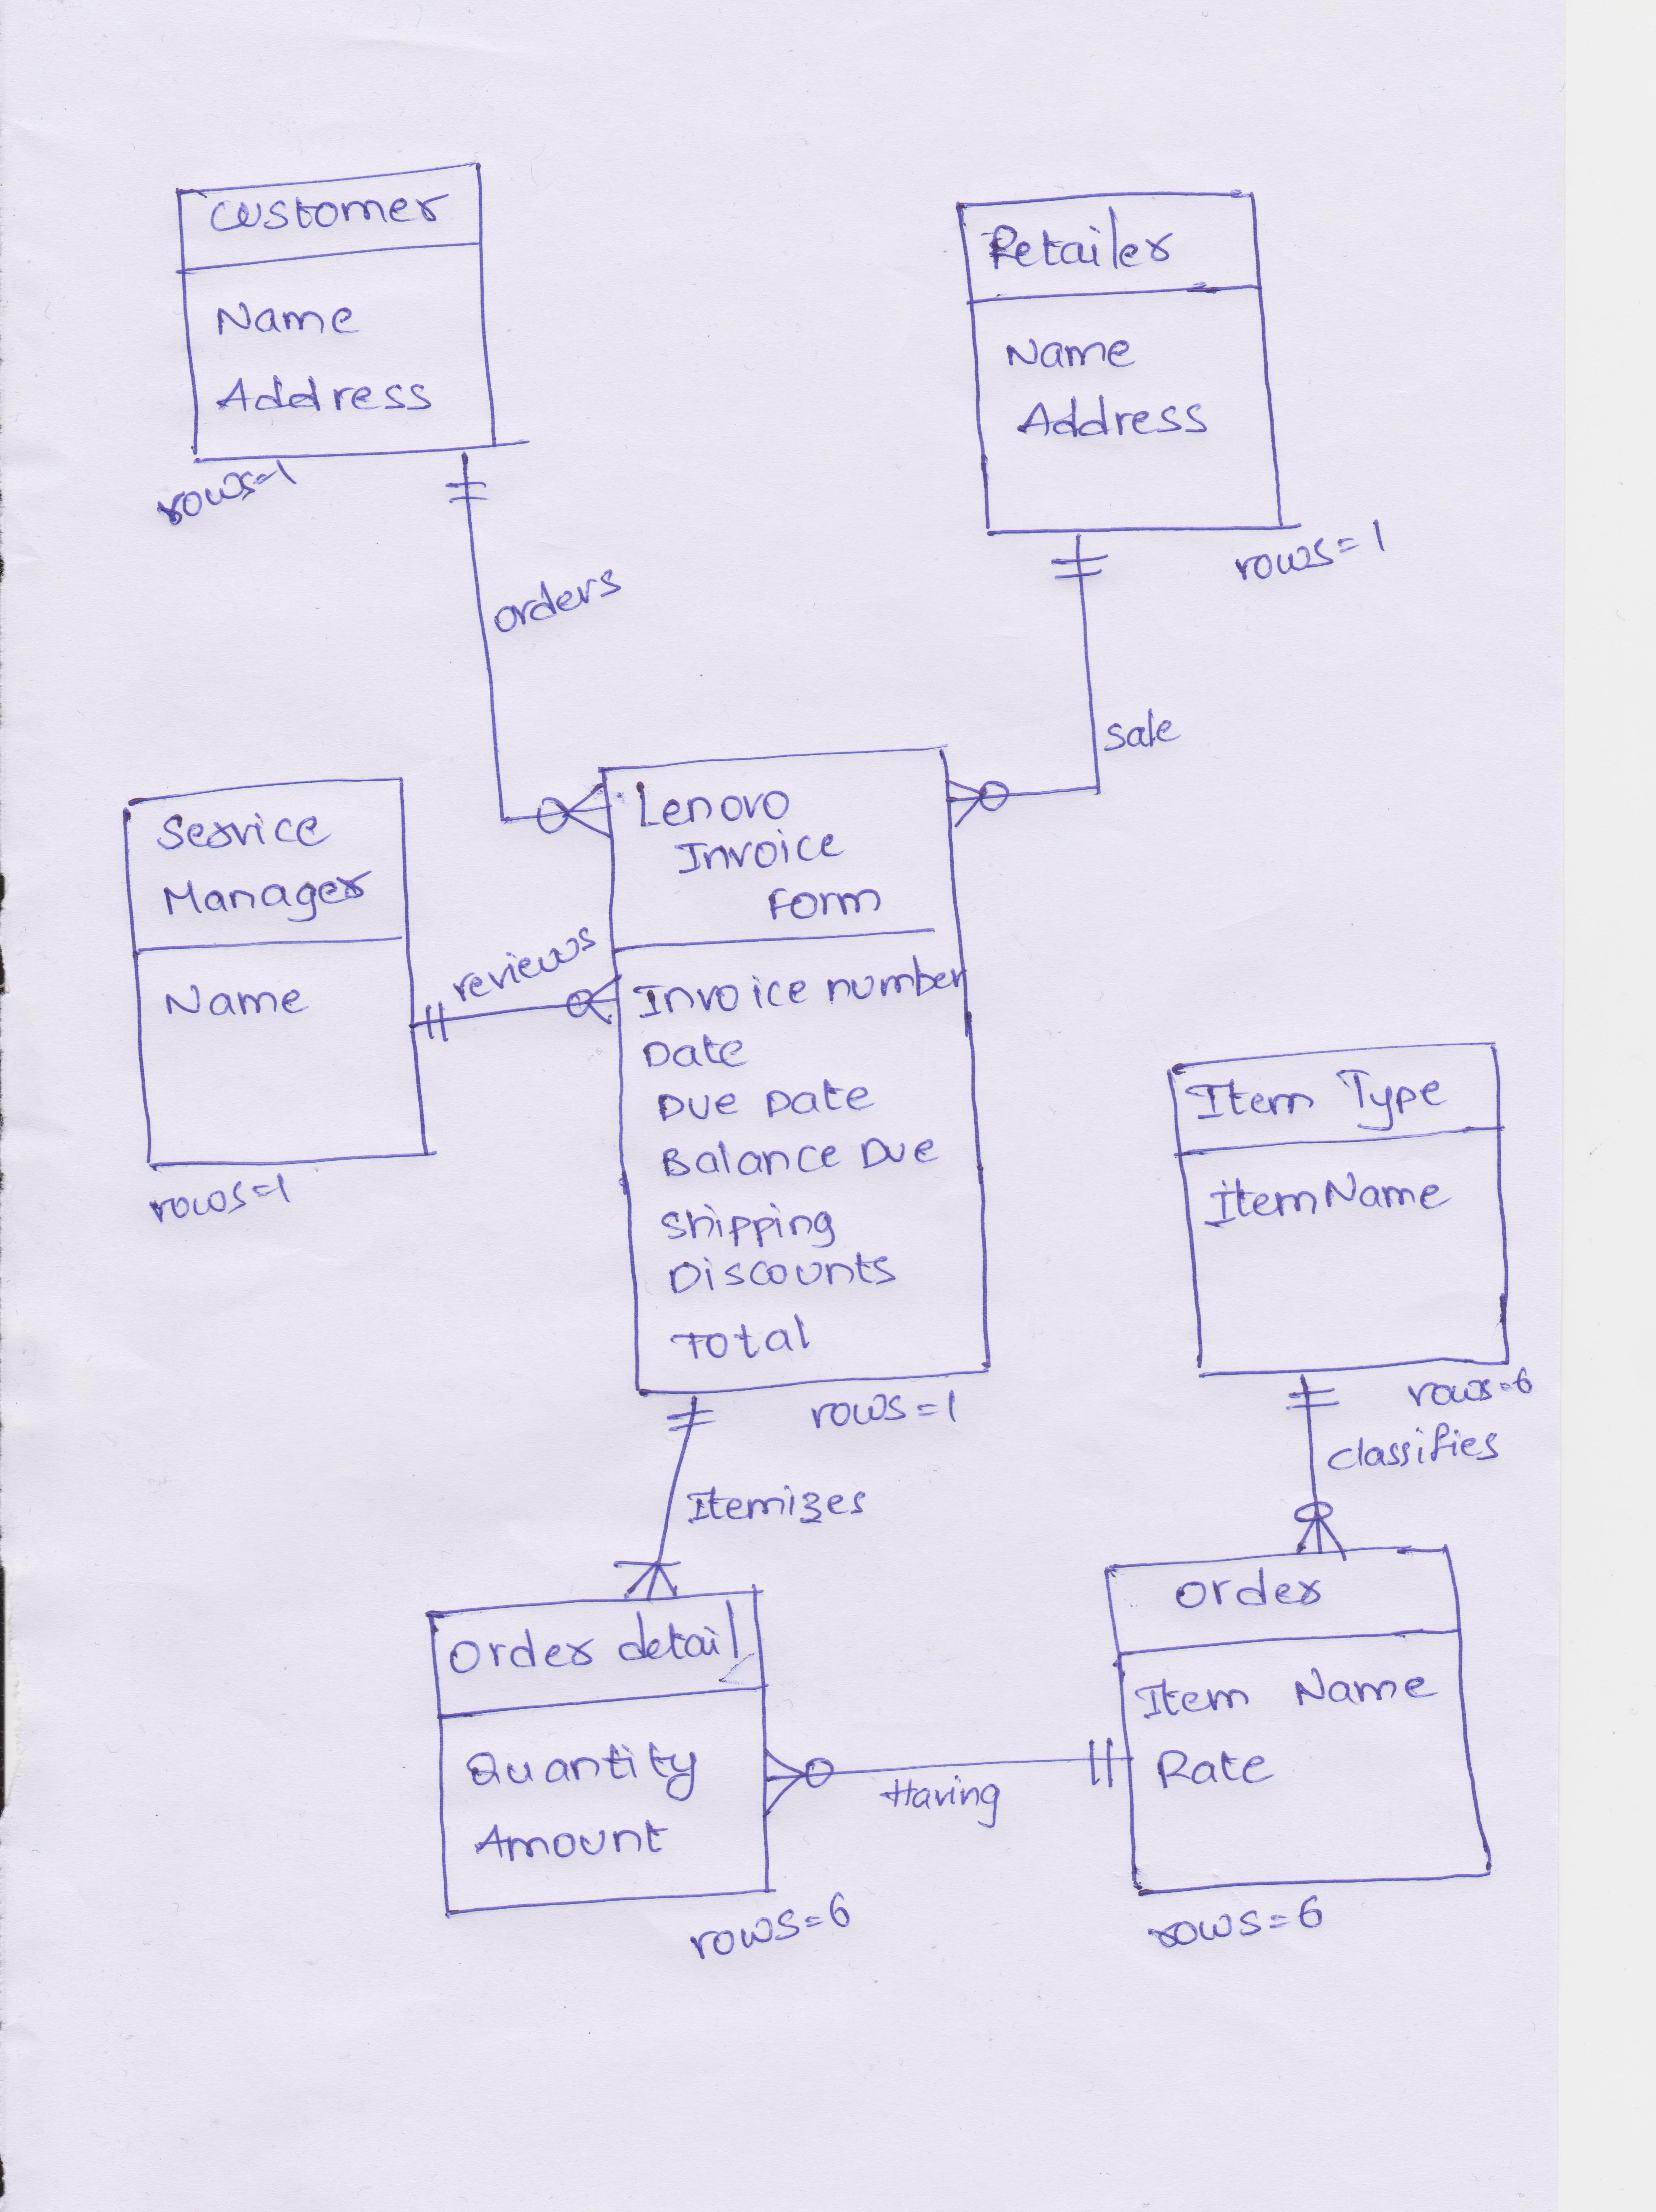 Customer
Name
Address
rows=1
Retailer
Name
Address
rows=1
orders
sale
Service
Manager
Name
rows=1
reviews
Lenovo
Invoice
Form
Invoice number
Date
Due Date
Balance Due
Shipping
Discounts
Total
rows=1
Item Type
ItemName
rows=6
classifies
Itemizes
Order detail
Quantity
Amount
rows=6
Having
Order
Item Name
Rate
rows=6